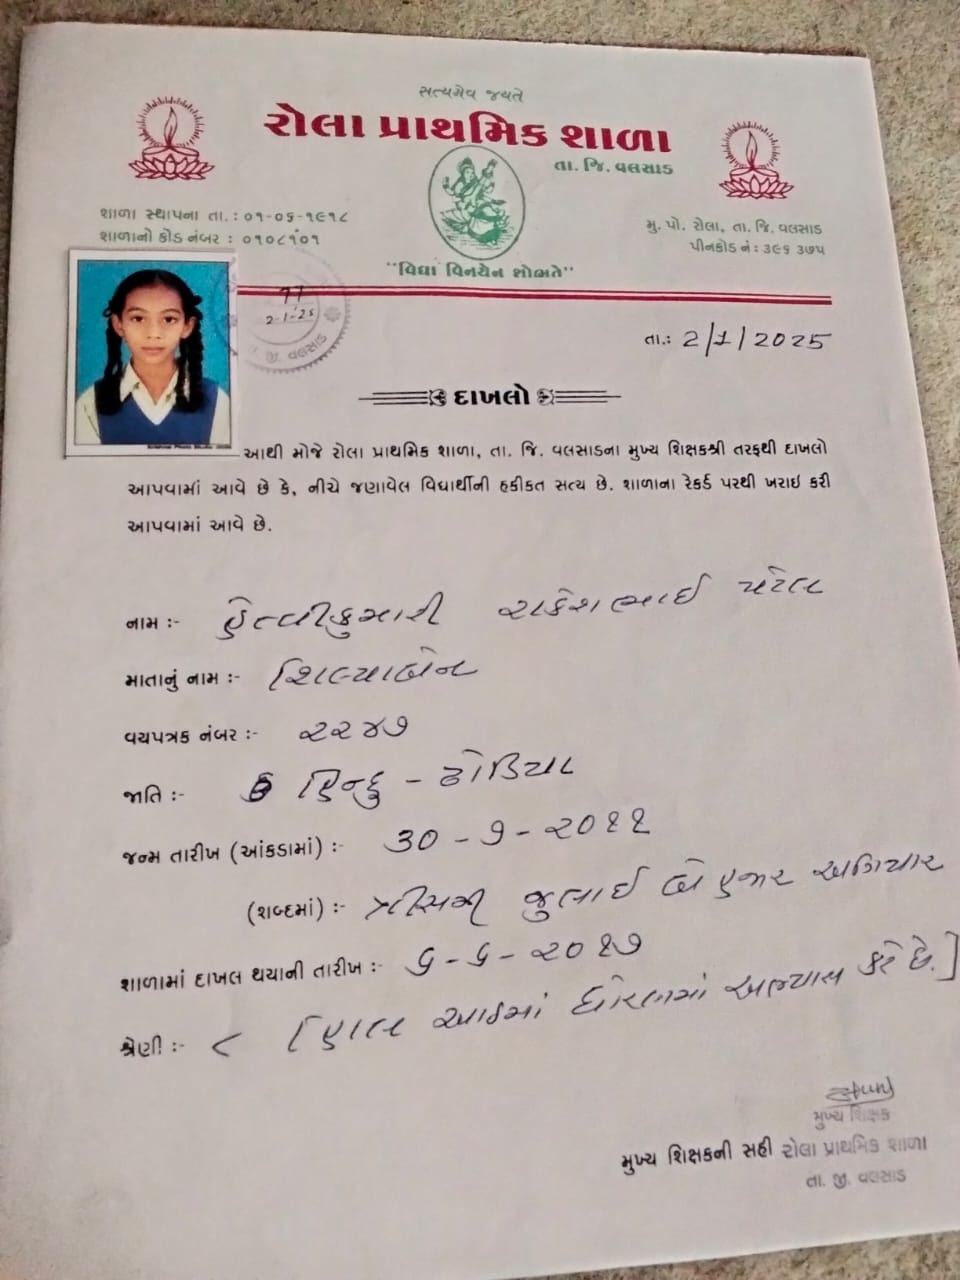 સત્યમેવ જયતે
રોલા પ્રાથમિક શાળા
તા. જિ. વલસાડ
શાળા સ્થાપના તા. : ૦૧-૦૬-૧૯૧૮
શાળાનો કોડ નંબર : ૦૧૦૮૧૦૧
મુ. પો. રોલા, તા. જિ. વલસાડ
પીનકોડ નં : ૩૯૬ ૩૭૫
"વિદ્યા વિનયેન શોભતે"
2-1-25
જી. વલસાડ
તા.: 2/1/2025
દાખલો
આથી મોજે રોલા પ્રાથમિક શાળા, તા. જિ. વલસાડના મુખ્ય શિક્ષકશ્રી તરફથી દાખલો
આપવામાં આવે છે કે, નીચે જણાવેલ વિદ્યાર્થીની હકીકત સત્ય છે. શાળાના રેકર્ડ પરથી ખરાઇ કરી
આપવામાં આવે છે.
નામ :- હેત્વીકુમારી રાકેશભાઈ પટેલ
માતાનું નામ :- શિલ્પાબેન
વયપત્રક નંબર :- ૨૨૪૭
જાતિ :- હિન્દુ - ઢોડિયા
જન્મ તારીખ (આંકડામાં) :- 30 - ૭ - ૨૦૧૧
(શબ્દમાં) :- ત્રીસમી જુલાઈ બે હજાર અગિયાર
શાળામાં દાખલ થયાની તારીખ :- ૬ - ૬ - ૨૦૧૭
શ્રેણી :- ૮ [હાલ આઠમાં ધોરણમાં અભ્યાસ કરે છે.]
મુખ્ય શિક્ષક
મુખ્ય શિક્ષકની સહી રોલા પ્રાથમિક શાળા
તા. જી. વલસાડ